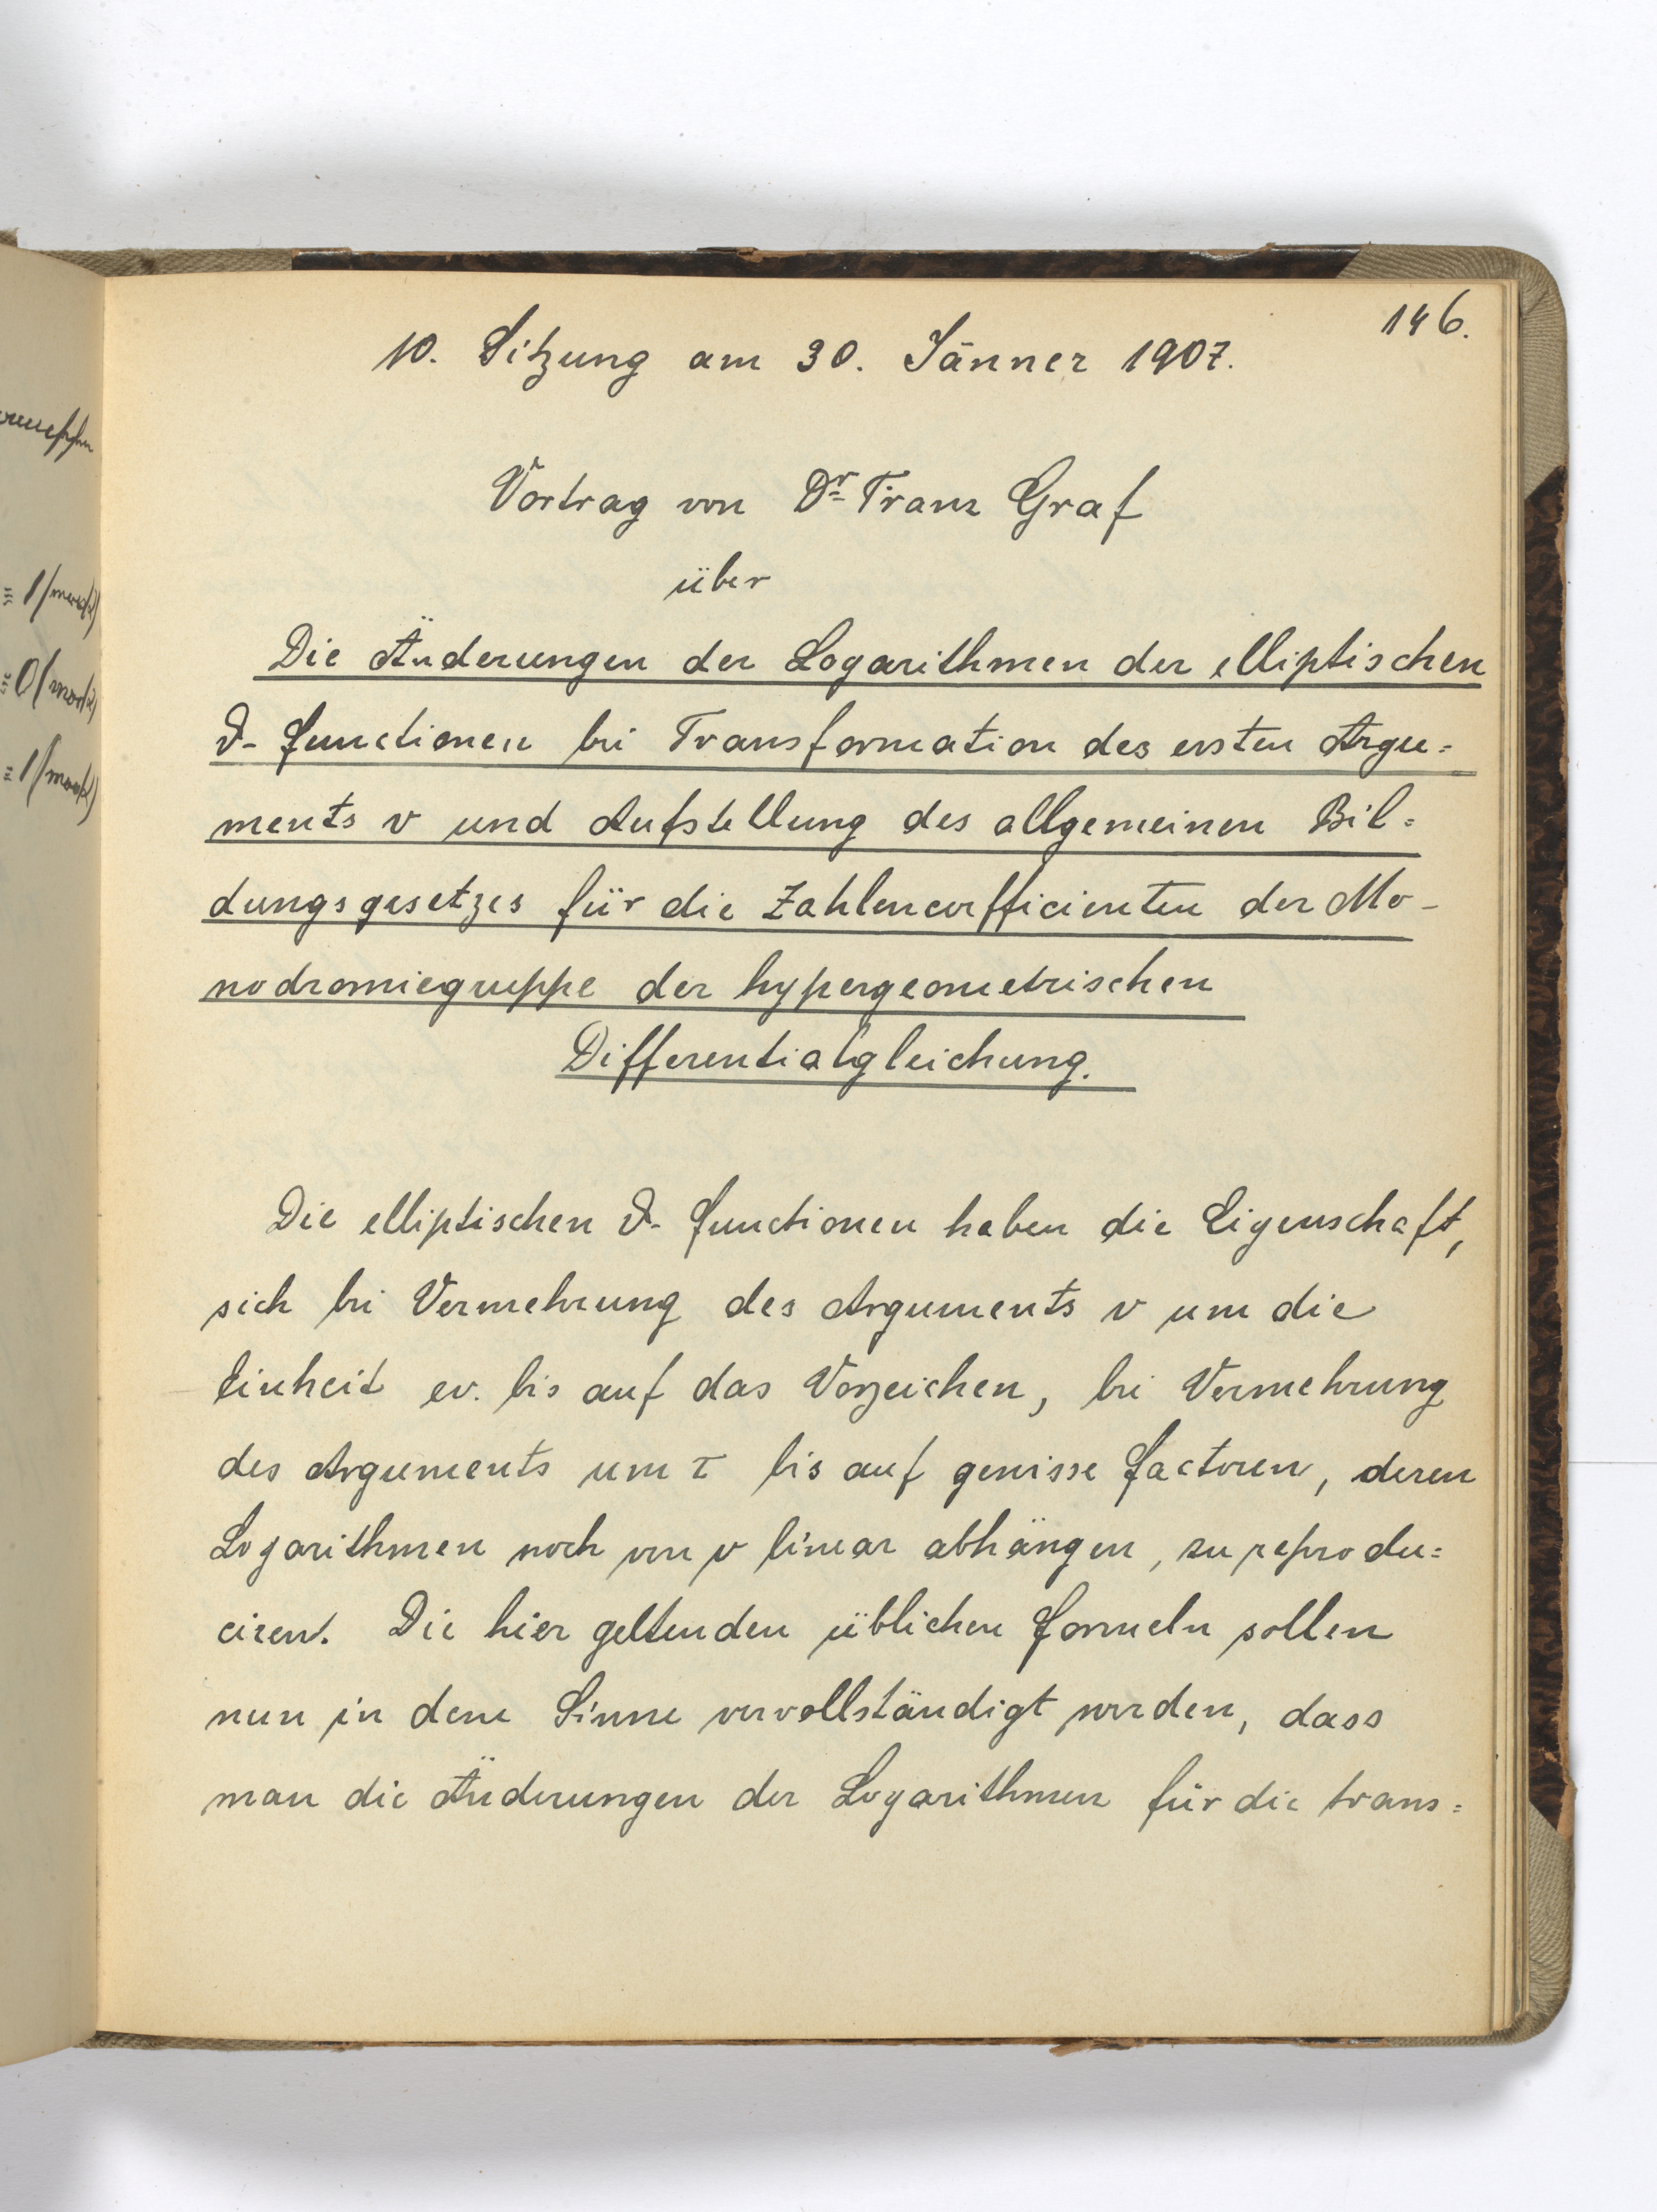 146.
10. Sitzung am 30. Jänner 1907.
Vortrag von Dr Franz Graf
über
Die Änderungen der Logarithmen der elliptischen
ϑ- Functionen bei Transformation des ersten Argu=
ments v und Aufstellung des allgemeinen Bil=
dungsgesetzes für die Zahlencoefficienten der Mo-
nodromiegruppe der hypergeometrischen
Differentialgleichung.
Die elliptischen ϑ- Functionen haben die Eigenschaft,
sich bei Vermehrung des Arguments v um die
Einheit ev. bis auf das Vorzeichen, bei Vermehrung
des Arguments um τ bis auf gewisse Factoren, deren
Logarithmen noch von v linear abhängen, zu reprodu=
ciren. Die hier geltenden üblichen Formeln sollen
nun in dem Sinne vervollständigt werden, dass
man die Änderungen der Logarithmen für die trans=